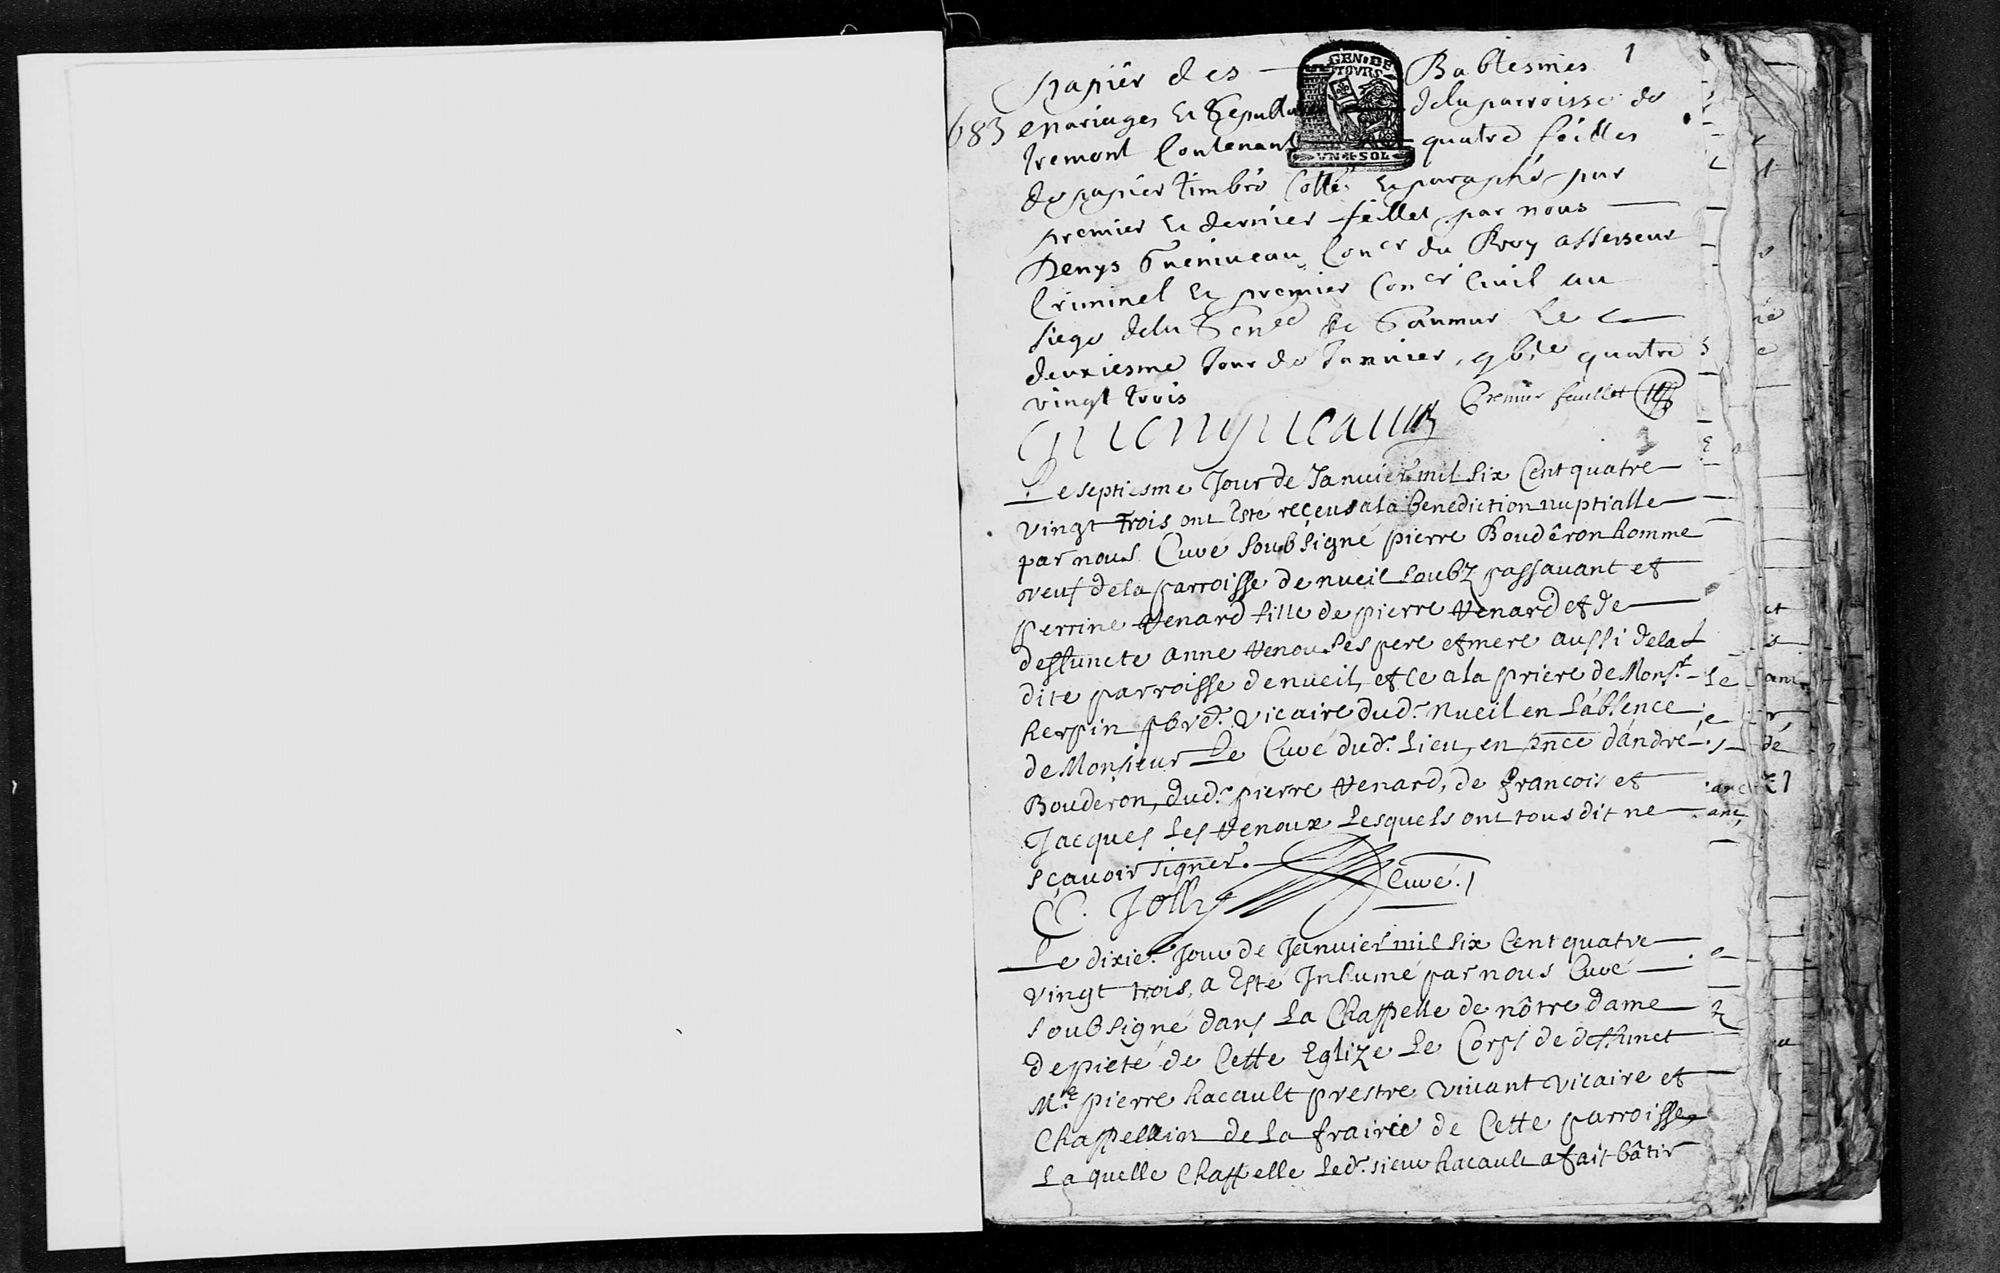 papier des Babtesmes 1
GEN. DE
TOVRS
VN SOL
683 mariages et Sepultures de la parroisse de
tremont Contenant quatre feilles
de papier timbré Cotté et paraphé par
premier et dernier feillet par nous
Denys Gueniveau Con.er du Roy assesseur
Criminel et premier Con.er Civil au
siege de la Sen.ée de Saumur Le
deuxiesme Jour de Janvier, quatre
vingt trois
Premier feuillet
Guenyveau
Le septiesme Jour de Janvier mil six Cent quatre
vingt trois ont Esté reçeus a la benediction nuptialle
par nous Curé soubsigné pierre Bouderon homme
veuf de la parroisse de nueil soubz passauant et
perrine Venard fille de pierre Venard et de
deffuncte anne Venou ses pere et mere aussi de la
dite parroisse de nueil, et ce a la priere de Mons.r
herpin pbre. vicaire dud. nueil en l'absence
de Monsieur Le Curé dud. lieu, en pnce d'andré
Bouderon, dud. pierre Venard, de françois et
Jacques les Venoux lesquels ont tous dit ne
sçavoir signer.
C. Jolly Curé.
Le dixie. Jour de Janvier mil six Cent quatre
vingt trois, a Esté Inhumé par nous Curé
soubsigné dans la Chappelle de nôtre dame
de pieté de Cette Eglize le Corps de deffunct
M.e pierre hacault prestre vivant vicaire et
Chappellain de la frairie de Cette parroisse,
La quelle Chappelle led. sieur hacault a fait bâtir